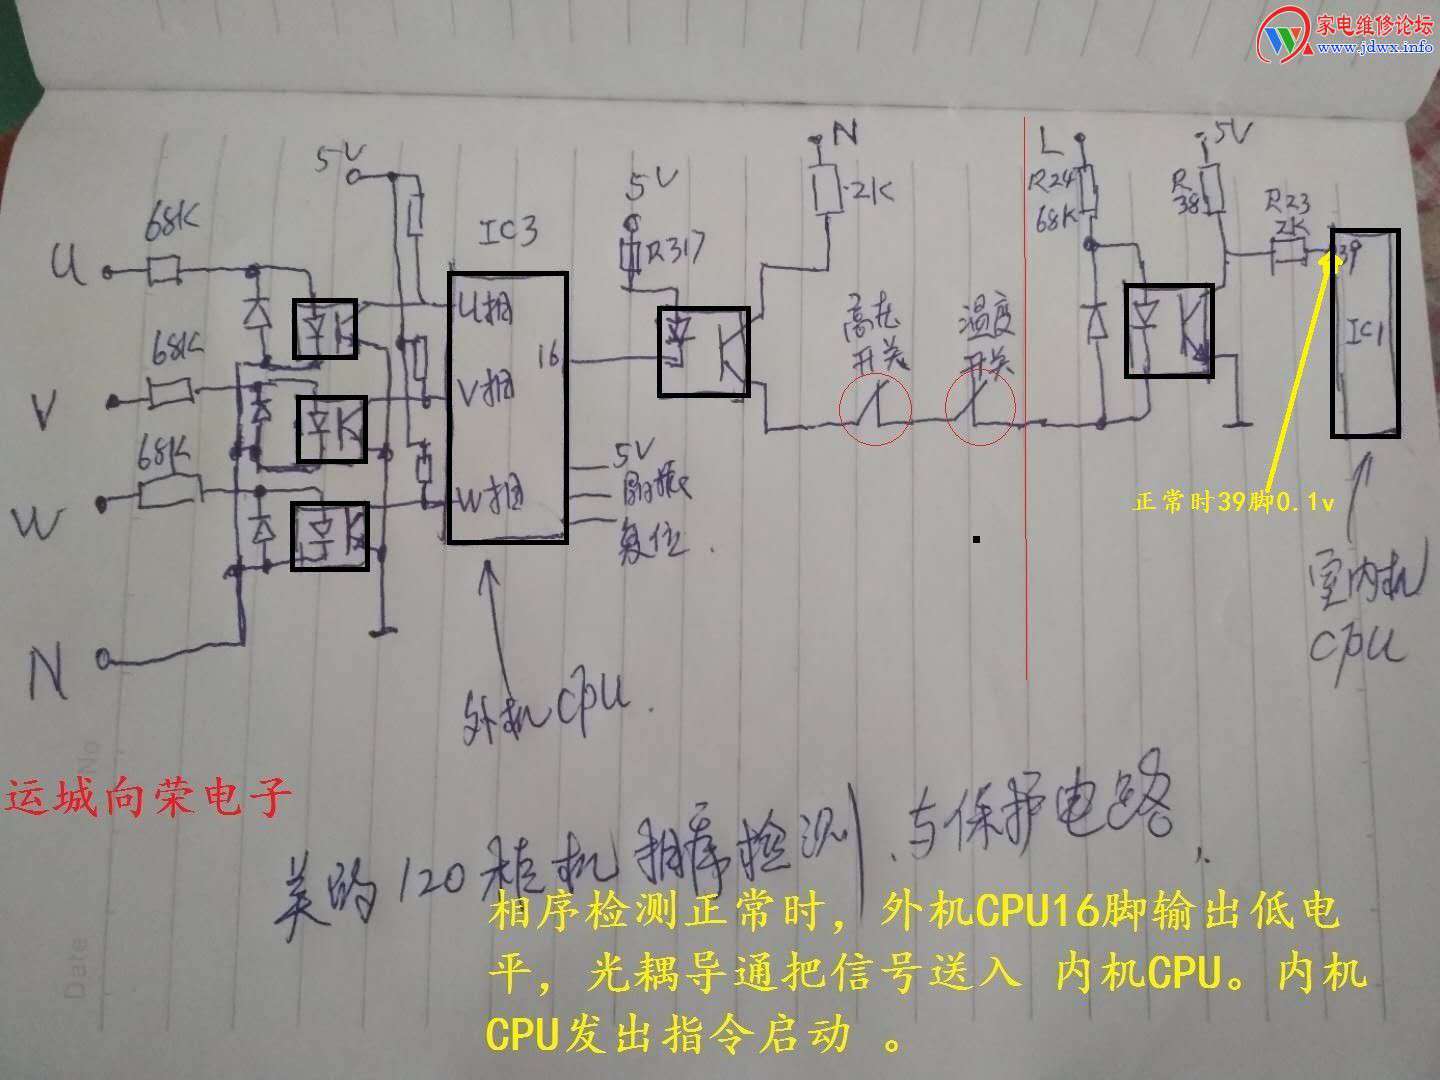 家电维修论坛
www.jdwx.info
5V
68K
U
IC3
U相
5V
R317
N
2K
L
R24
68K
5V
R
38
R23
2K
39
IC1
68K
V
V相
16
高压
开关
温度
开关
68K
W
W相
5V
复位
正常时39脚0.1v
N
外机CPU
室内机
CPU
No
Date
运城向荣电子
美的120柜机相序检测与保护电路
相序检测正常时，外机CPU16脚输出低电
平，光耦导通把信号送入 内机CPU。内机
CPU发出指令启动 。